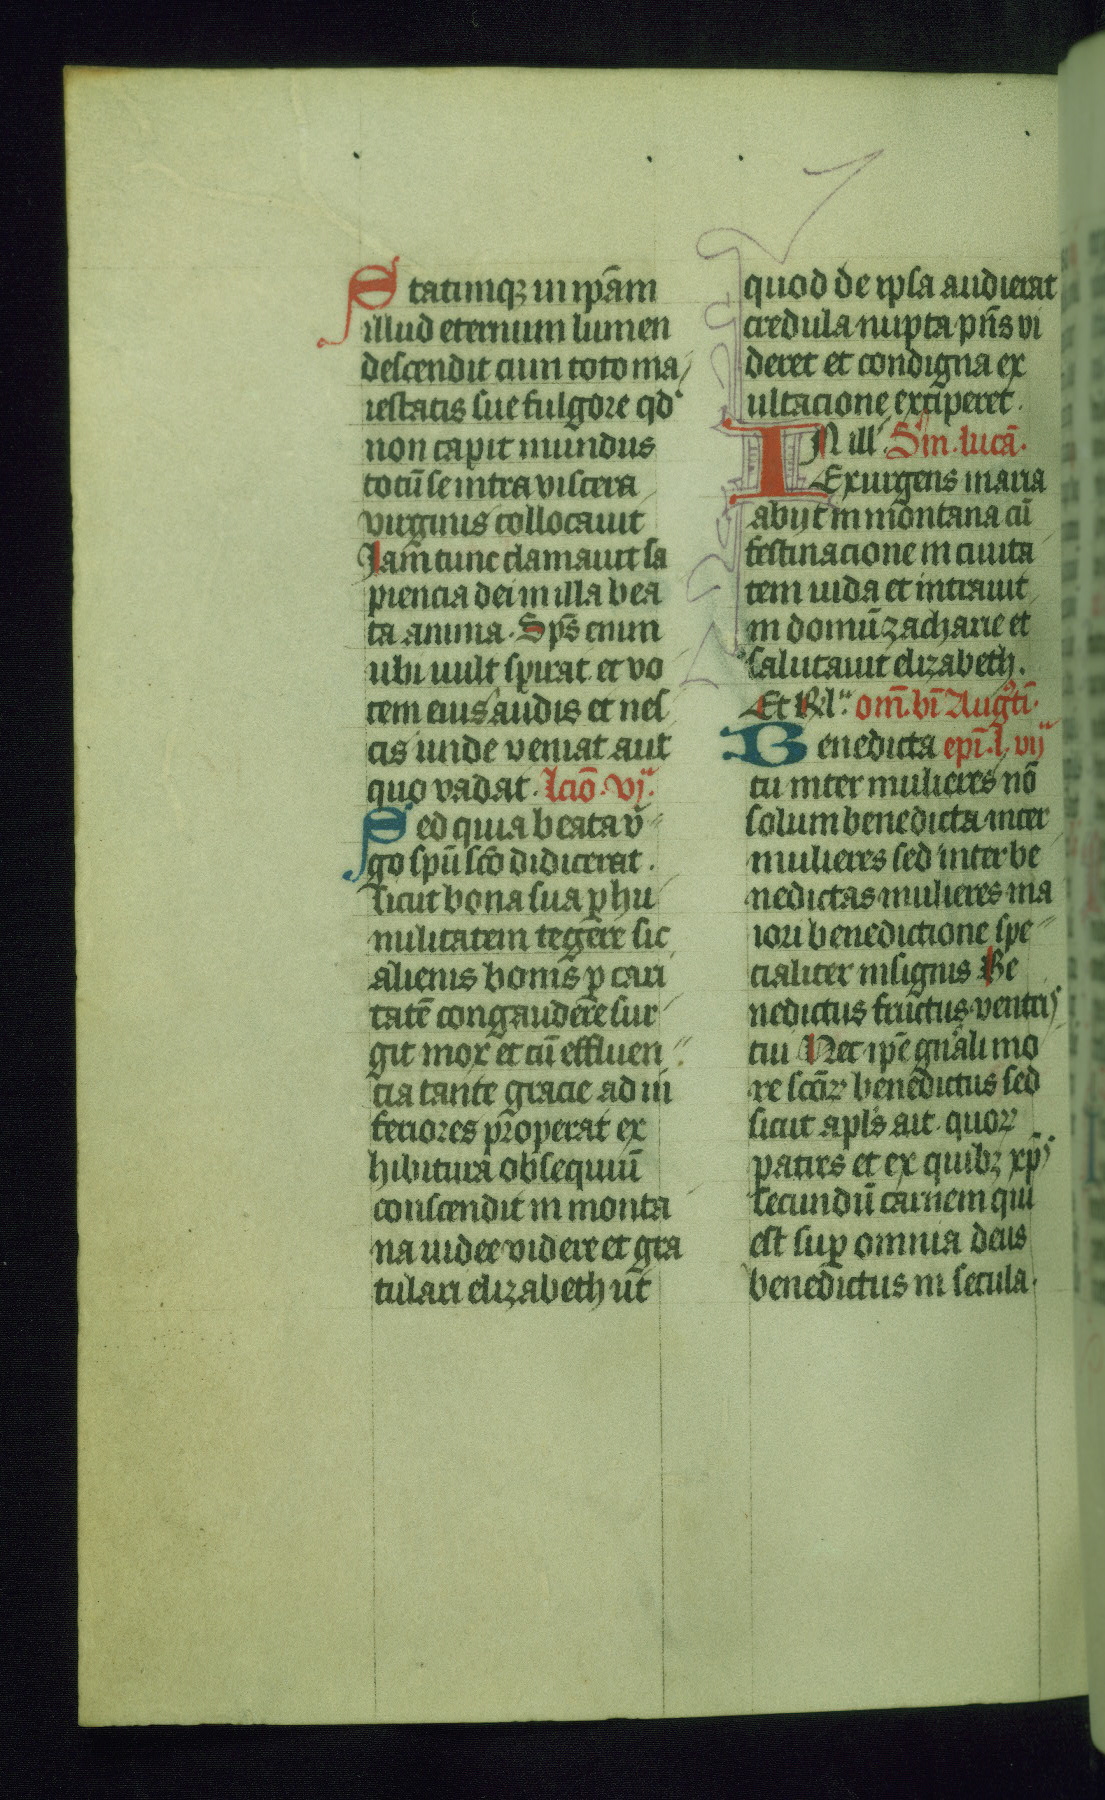 Statimqꝫ in ip̄am
illud eternum lumen
descendit cum toto ma
iestatis sue fulgore qd
non capit mundus
totū se intra viscera
virginis collocauit
Iam tunc clamauit sa
piencia dei in illa bea
ta anima. Sp̄s enim
ubi uult spirat et vo
cem eius audis et nes
cis unde veniat aut
quo vadat. lc̄io. vj.
Sed quia beata v̄
go sp̄u sc̄o didicerat.
sicut bona sua ꝑ hu
militatem tegere sic
alienis bonis ꝑ cari
tatē congaudere sur
git mox et cū effluen
cia tante gracie ad in
feriores properat ex
hibitura obsequiū
conscendit in monta
na uidere videre et gra
tulari elizabeth ut
quod de ipsa audierat
credula nupta p̄ns vi
deret et condigna ex
ultacione exciperet.
IN ill'. Sm̄. lucā.
Exurgens maria
abijt in montana cū
festinacione in ciuita
tem iuda et intrauit
in domū zacharie et
salutauit elizabeth.
Et Rl'. om̄. bī Augti.
Benedicta ep̄i. l. vij
tu inter mulieres nō
solum benedicta inter
mulieres sed inter be
nedictas mulieres ma
iori benedictione spe
cialiter insignis Be
nedictus fructus ventris
tui Nec ip̄e gn̄ali mo
re sc̄oꝝ benedictus sed
sicut apl's ait. quoꝝ
patres et ex quibꝫ xp̄s
secundū carnem qui
est suꝑ omnia deus
benedictus in secula.